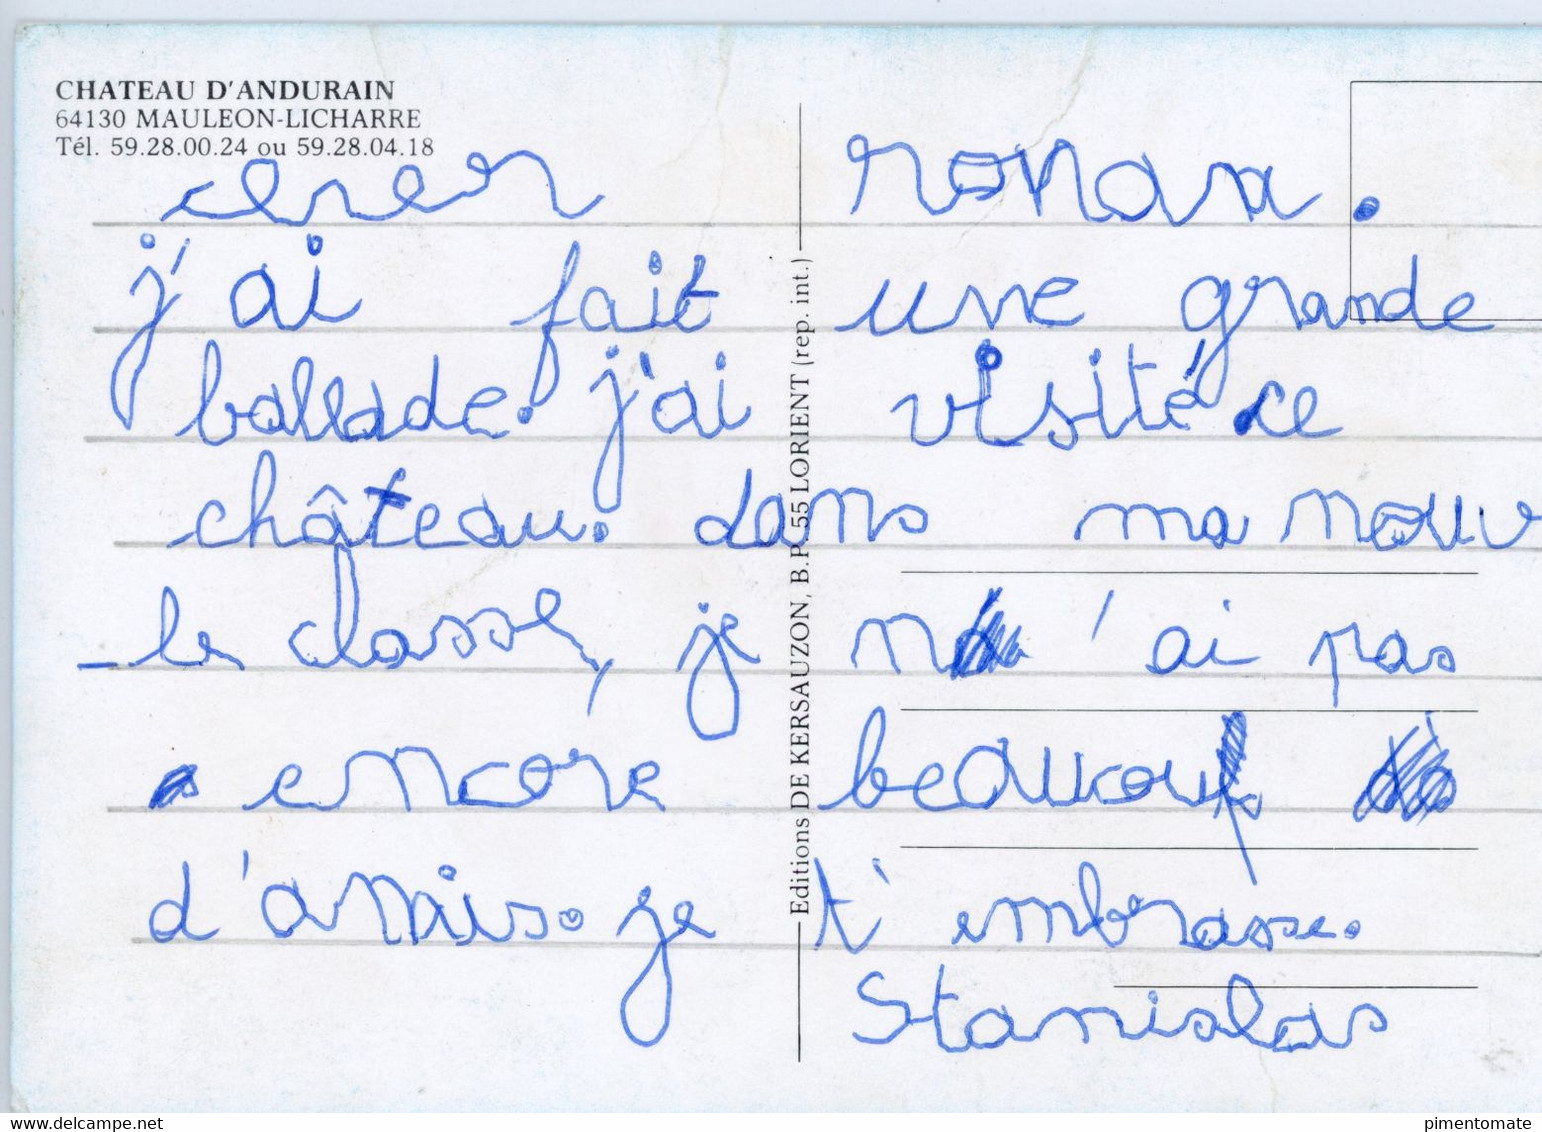 CHATEAU D'ANDURAIN
64130 MAULEON-LICHARRE
Tél. 59.28.00.24 ou 59.28.04.18
ronan.
j'ai fait une grande
ballade. j'ai visité ce
château. dans ma nouv
le classe, je n'ai pas
encore beaucoup
d'amis. je t'embrasse.
Stanislas
Editions DE KERSAUZON, B.P. 55 LORIENT (rep. int.)
www.delcampe.net
pimentomate